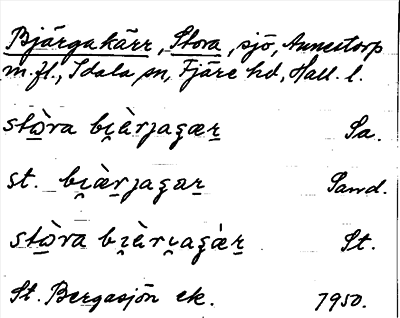 Bjärgakärr, Stora, sjö, Annestorp
m.fl., Idala sn, Fjäre hd, Hall. l.
stὼra bi̯æ̀rjagær Sa.
st. bi̯æ̀rjagær Sand.
stὼra bi̯æ̀ri̯agæ̀r St.
St. Bergasjön ek. 1950.